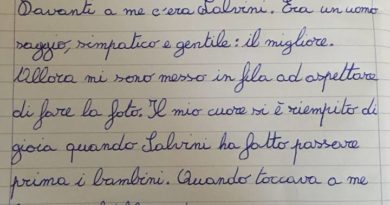 Davanti a me c'era Salvini. Era un uomo
saggio, simpatico e gentile: il migliore.
Allora mi sono messo in fila ad aspettare
di fare la foto. Il mio cuore si è riempito di
gioia quando Salvini ha fatto passare
prima i bambini. Quando toccava a me